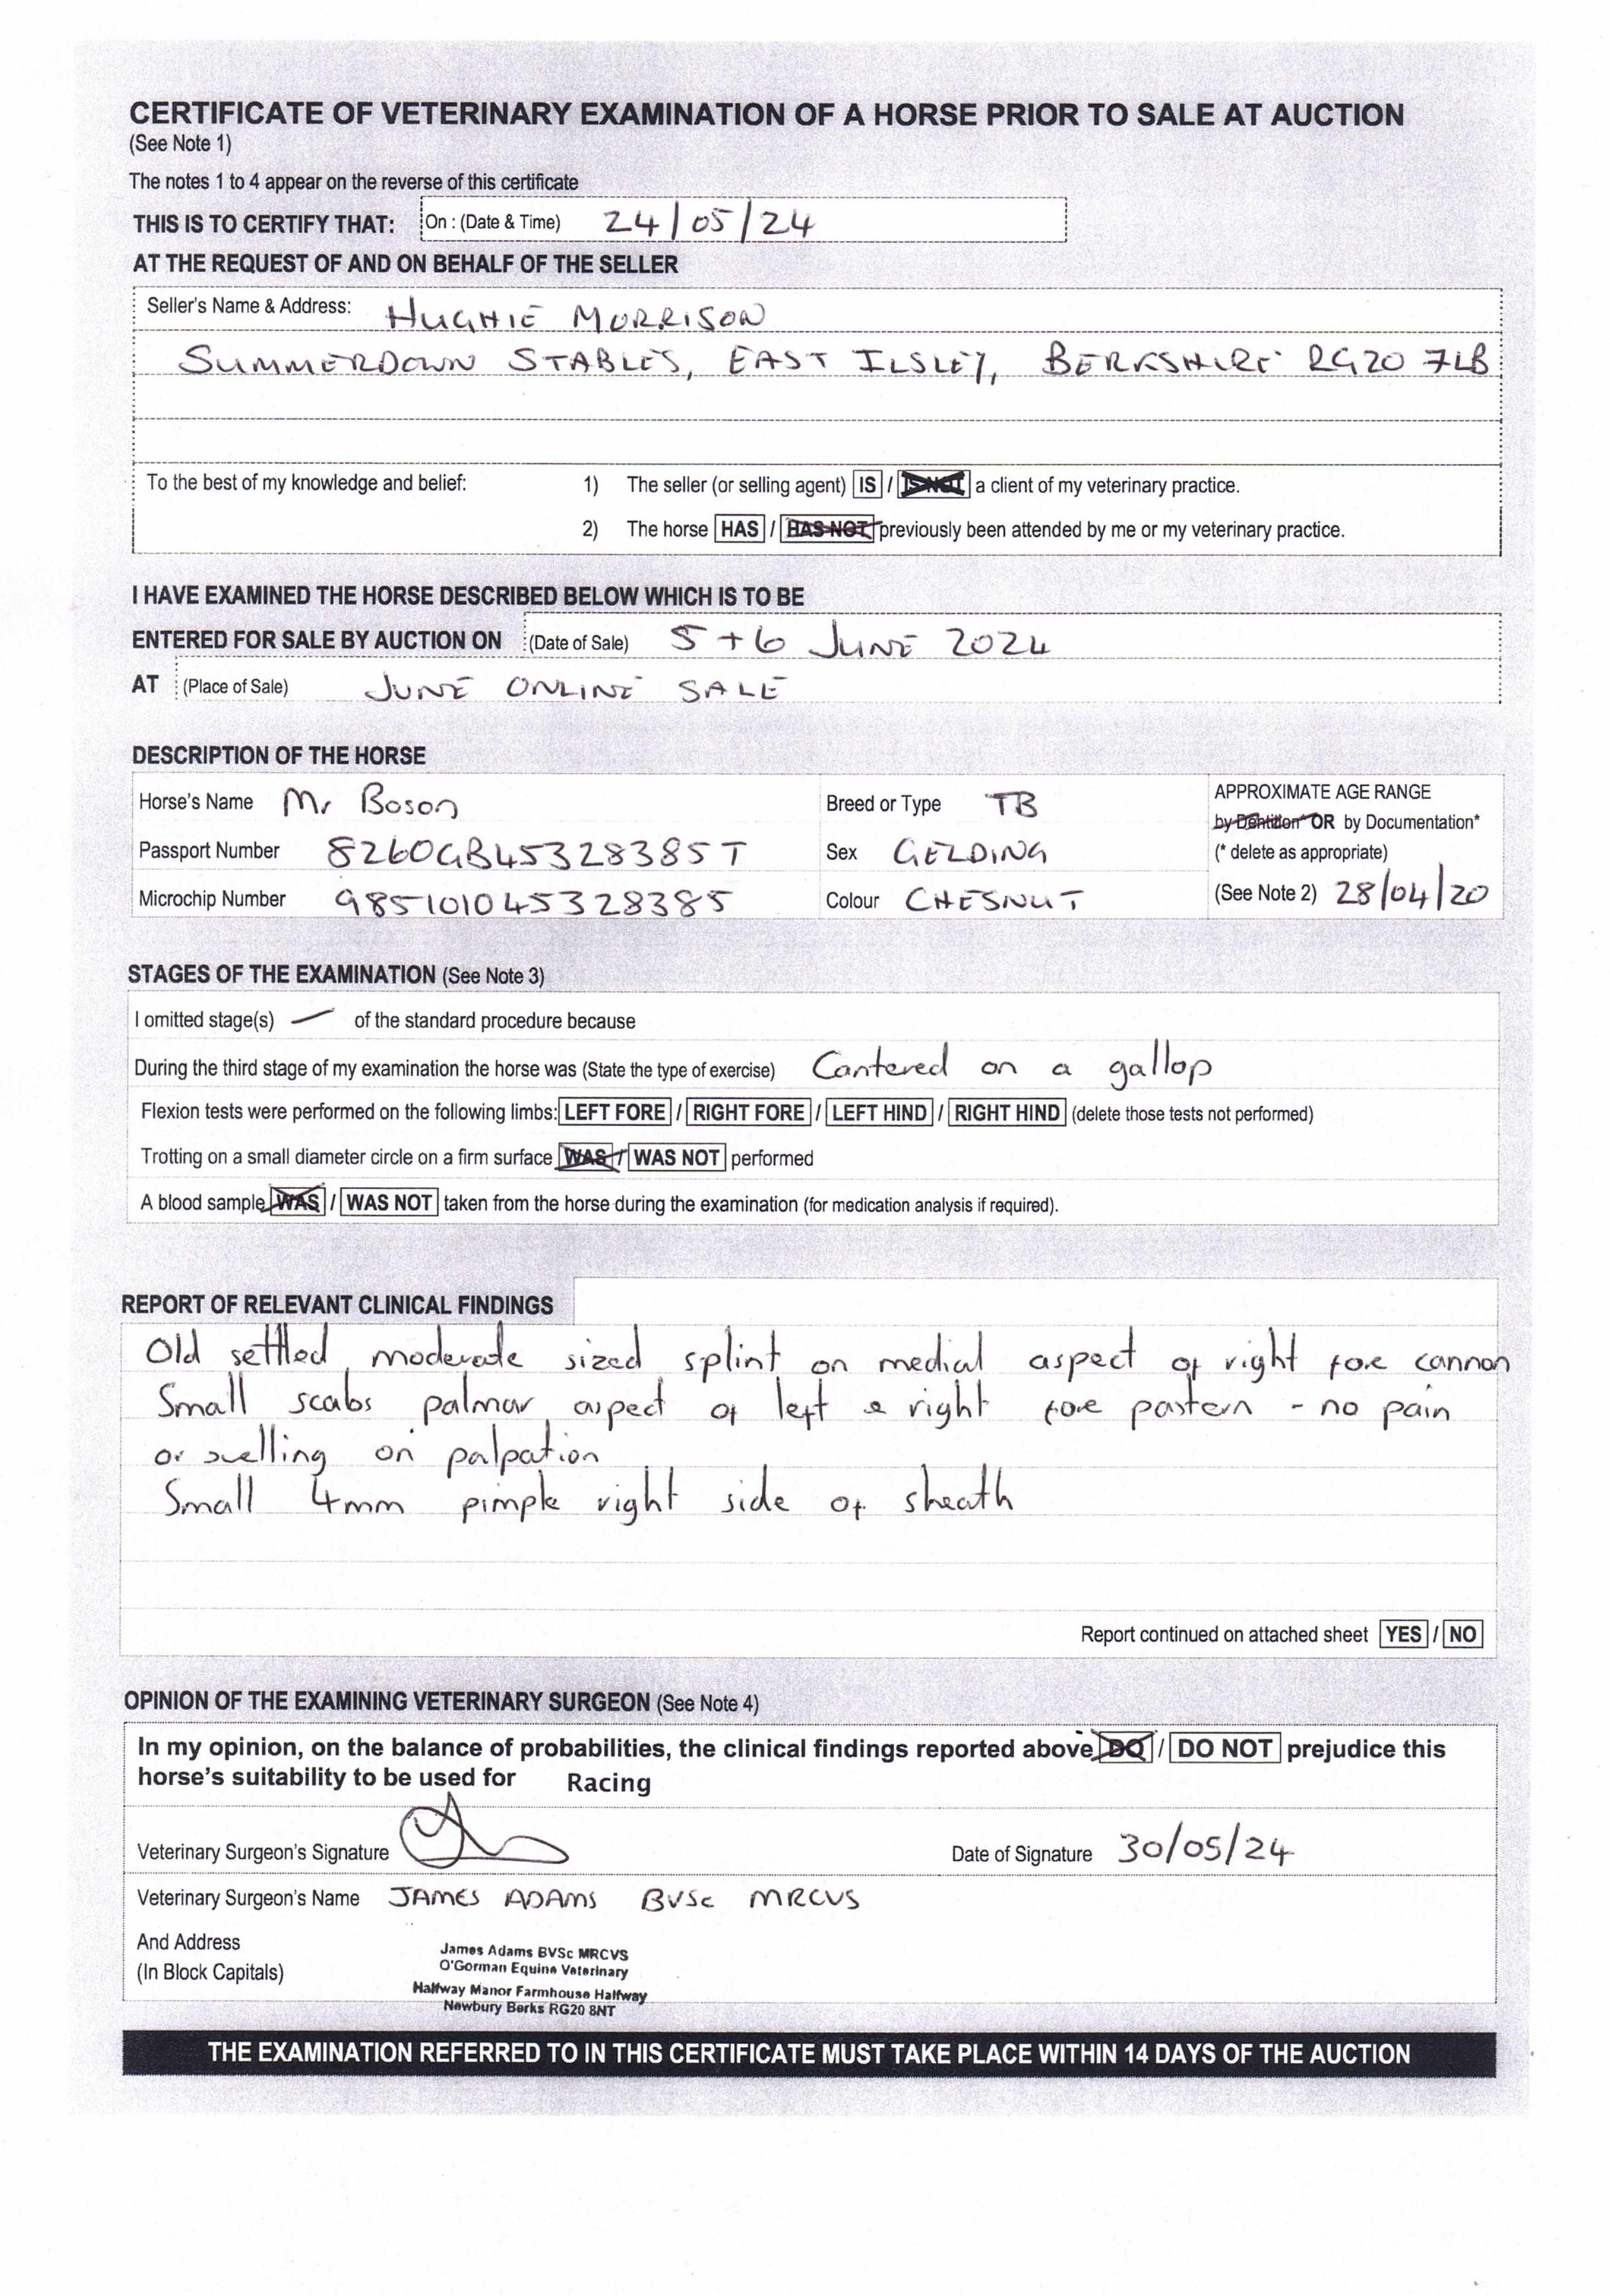 CERTIFICATE OF VETERINARY EXAMINATION OF A HORSE PRIOR TO SALE AT AUCTION
(See Note 1)
The notes 1 to 4 appear on the reverse of this certificate
THIS IS TO CERTIFY THAT: On : (Date & Time) 24/05/24
AT THE REQUEST OF AND ON BEHALF OF THE SELLER
Seller's Name & Address: HUGHIE MORRISON
SUMMERDOWN STABLES, EAST ILSLEY, BERKSHIRE RG20 7LB
To the best of my knowledge and belief: 1) The seller (or selling agent) IS / IS NOT a client of my veterinary practice.
2) The horse HAS / HAS NOT previously been attended by me or my veterinary practice.
I HAVE EXAMINED THE HORSE DESCRIBED BELOW WHICH IS TO BE
ENTERED FOR SALE BY AUCTION ON (Date of Sale) 5 + 6 JUNE 2024
AT (Place of Sale) JUNE ONLINE SALE
DESCRIPTION OF THE HORSE
Horse's Name Mr Boson Breed or Type TB APPROXIMATE AGE RANGE
by Dentition* OR by Documentation*
Passport Number 8260GB45328385T Sex GELDING (* delete as appropriate)
Microchip Number 985101045328385 Colour CHESNUT (See Note 2) 28/04/20
STAGES OF THE EXAMINATION (See Note 3)
I omitted stage(s) — of the standard procedure because
During the third stage of my examination the horse was (State the type of exercise) Cantered on a gallop
Flexion tests were performed on the following limbs: LEFT FORE / RIGHT FORE / LEFT HIND / RIGHT HIND (delete those tests not performed)
Trotting on a small diameter circle on a firm surface WAS / WAS NOT performed
A blood sample WAS / WAS NOT taken from the horse during the examination (for medication analysis if required).
REPORT OF RELEVANT CLINICAL FINDINGS
Old settled moderate sized splint on medial aspect of right fore cannon
Small scabs palmar aspect of left & right fore pastern - no pain
or swelling on palpation
Small 4mm pimple right side of sheath
Report continued on attached sheet YES / NO
OPINION OF THE EXAMINING VETERINARY SURGEON (See Note 4)
In my opinion, on the balance of probabilities, the clinical findings reported above DO / DO NOT prejudice this
horse's suitability to be used for Racing
Veterinary Surgeon's Signature Date of Signature 30/05/24
Veterinary Surgeon's Name JAMES ADAMS BVSc MRCVS
And Address
(In Block Capitals)
James Adams BVSc MRCVS
O'Gorman Equine Veterinary
Halfway Manor Farmhouse Halfway
Newbury Berks RG20 8NT
THE EXAMINATION REFERRED TO IN THIS CERTIFICATE MUST TAKE PLACE WITHIN 14 DAYS OF THE AUCTION